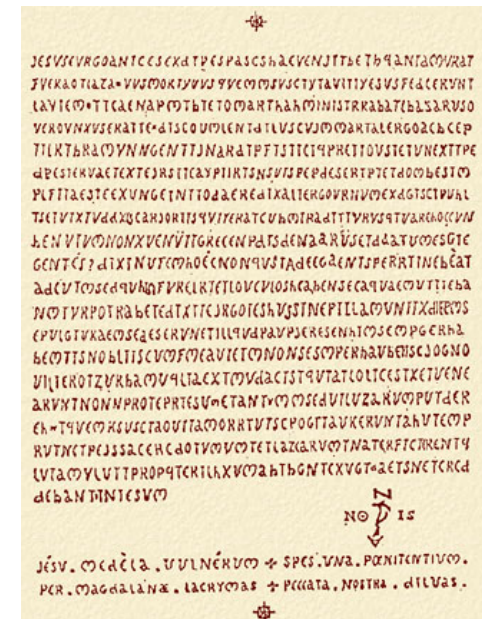 JESVSEVRGOANTCESEXATPESPASCSHAEVENJTTBETHQANTAMVRAT
FVERAOTIAZA•VVSMORTYVVSQVEMMSVSCTYTAVITIYESVSFEDCERVNT
LAVIEM•TTCAENAPMTHTETOMARTHAHMINISTRRABATCHASARUSO
VEROVNXVSERATTE•DTSCOVMLENTATILVSCVJMMARTALERGOACHCEP
TTLKTHRAMVNNGENTTJNARDTPFTSTTCIQPRETTOVSTETVNEXTTPE
dPESTERVAETEXTEJRSTTCAYPTIRTSNSVISPEPdESERTPTETdOMBESTM
PLFITAESTEEXVNGEINTTOdAEREdIXALTERGOVRNVMEXdGTSCTPVHL
TSETVTXTVddXGCARJORITISQVIYERATCVHMTRAdTTTVRVSQTVAREHOCCVN
hENVTVMNONXVENVITGRECENPdTSdENAaRVSETdAaTVMESGTE
GENTES?dIXTNVTEMhOECNONQVSTAdEEGAENTSPERRTINEBEAT
AdEVTMSEdQVhMFVRELRTETLOVCVLOShCAbENSECAQVAEMVTTIEBA
NMTVRPOTRABETEdTXTTEJRGOIESHVSSTNEPTILLAMVNITXdIEPMS
EPVLGTVRAEMSEAESERVNETILLQVdPAVPJERESENhTMSEMPGERhA
BEMTTSNOBLITISCVMFMEAVIETMONONSESMPERHAVBENSCJOGNO
VILIEROTZVRBAMVQLTAEXTMVdACTSTQVTATLOLTCESTXETVENE
ARVNTNONNPROTEPRTESVMETANTVMMSEdVTLVZARVMPVTdER
Eh•TQVEMKSVSCTAOVITAMORRTVTSCPOGTTAVKERVNTAhVTEMP
RVTNCTPEJSSACERCdOTVMVMTETLAZCARVMTNATERFTCTRENTQ
LVTAMYLVTTPROPQTERTLhXVMAbTBGNTEXVGT•AETSNETCRCd
dEBANTINIESVM
N
NO IS
JÉSV . MEdÈLA . VVLNÉRVM + SPES.VNA. PŒNITENTIVM.
PER.MAGdALANÆ . LACRYMAS + PECCATA.NOSTRA . dILVAS.